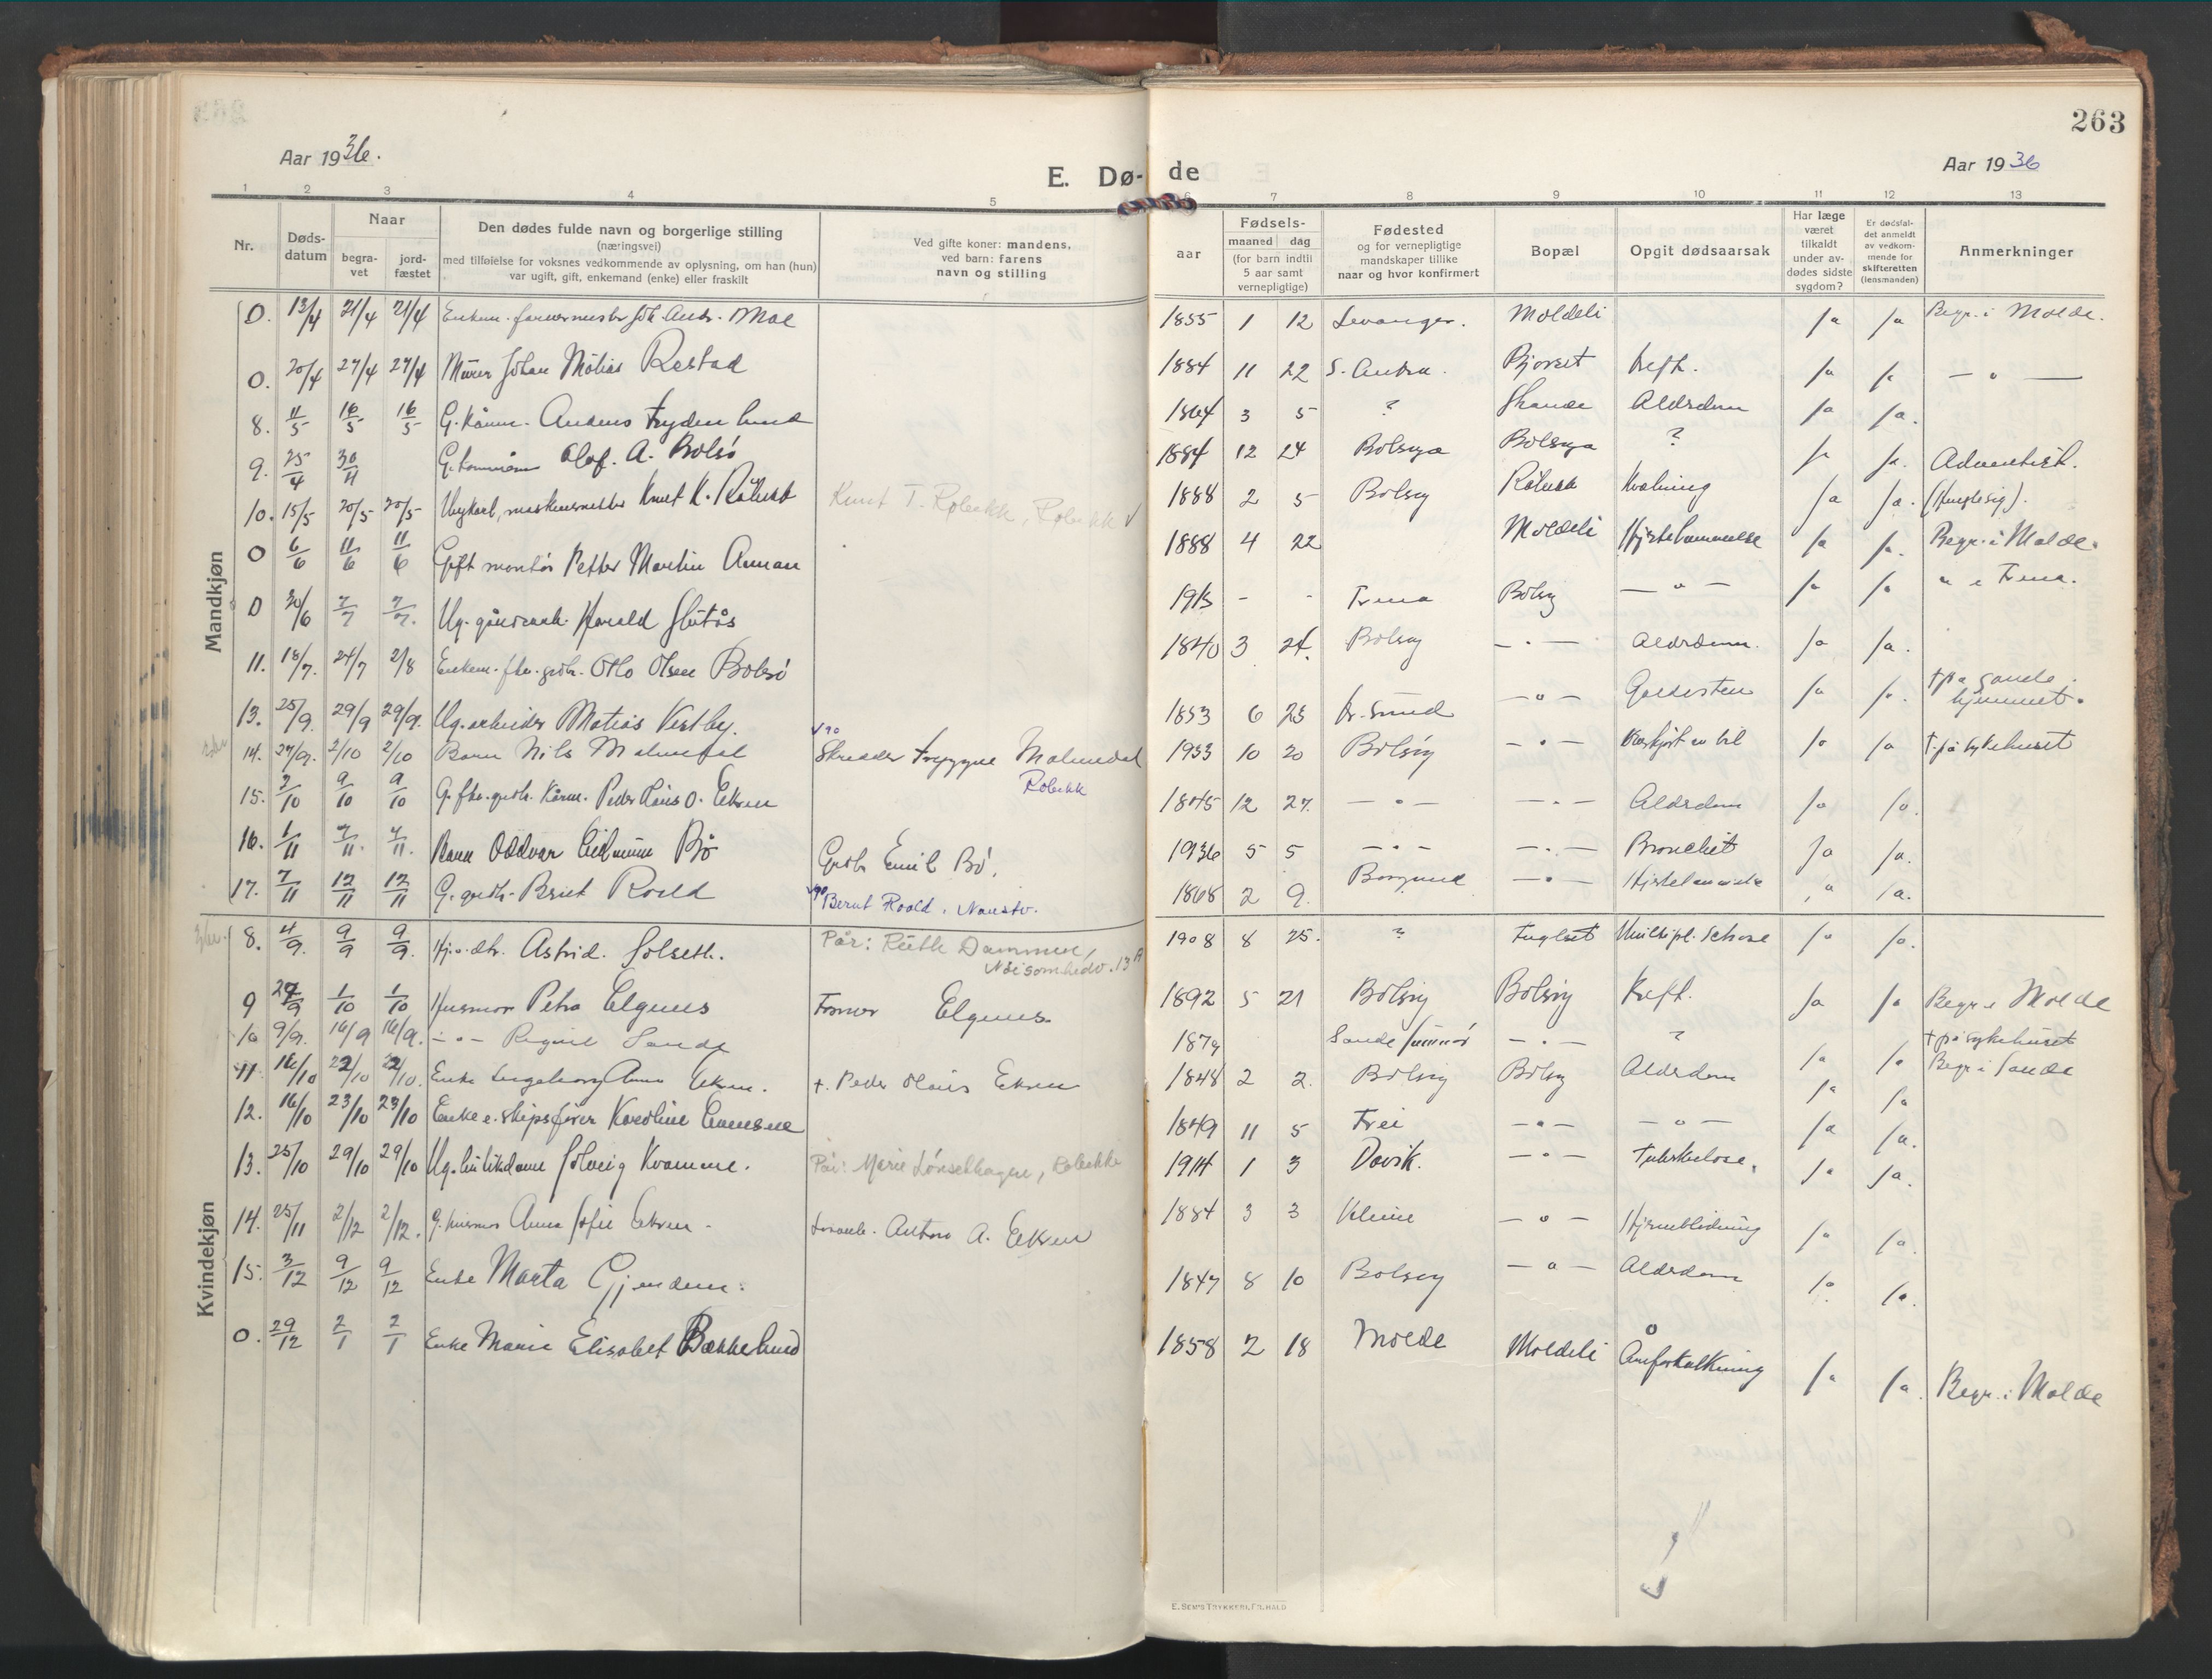 263
Aar 1936.
Aar 1936
E. Dø- de
1 2 3 4 5 6 7 8 9 10 11 12 13
Nr.
Døds-
datum
Naar
begra-
vet
jord-
fæstet
Den dødes fulde navn og borgerlige stilling
(næringsvei)
med tilføielse for voksnes vedkommende av oplysning, om han (hun)
var ugift, gift, enkemand (enke) eller fraskilt
Ved gifte koner: mandens,
ved barn: farens
navn og stilling
Fødsels-
aar
maaned dag
(for barn indtil
5 aar samt
vernepligtige)
Fødested
og for vernepligtige
mandskaper tillike
naar og hvor konfirmert
Bopæl
Opgit dødsaarsak
Har læge
været
tilkaldt
under av-
dødes sidste
sygdom?
Er dødsfal-
det anmeldt
av vedkom-
mende for
skifteretten
(lensmanden)
Anmerkninger
Mandkjøn
0. 13/4 21/4 21/4 Enkem. Joh. Andr. Moe 1855 1 12 Levanger. Moldeli Ja Ja Begr. i Molde.
0. 20/4 27/4 27/4 Murer Johan Mathias Restad 1884 11 22 Bjorset Kreft. Ja Ja — " —
8. 11/5 16/5 16/5 G. Kårm. Anders Frydenlund 1864 3 5 ? Alderdom Ja Ja.
9. 25/4 30/4 Olaf. A. Bolsø 1884 12 24 Bolsøya Bolsøya ? Ja Ja. Adventist.
10. 15/5 20/5 20/5 Ungkarl, maskinmester Knut K. Røbekk Knut T. Røbekk, Røbekk √ 1888 2 5 Bolsøy Røbekk Kvelning Ja Ja.
0 6/6 11/6 11/6 Gift montør Petter Martin Aaman 1888 4 22 Moldeli Hjertelammelse Ja Ja. Begr. i Molde.
0 30/6 7/7 7/7. Ug. Harald 1913 - - Fræna Bolsøy — " — Ja Ja " i Fræna.
11. 18/7. 24/7 2/8 Enkem. fhv. grdbr. Otto Olsen Bolsø 1840 3 24. Bolsøy — " — Alderdom. Ja Ja.
13. 25/9. 29/9 29/9. Ug. arbeider Matias Vestby. 1853 6 23 Kr. Sund — " — Galdesten Ja Ja. † på gamle-
hjemmet.
14. 27/9. 2/10 2/10 Barn Nils Malmedal Skredder Trygve Malmedal
Røbekk 1933 10 20 Bolsøy — " — Overkjørt av bil Ja Ja † på sykehuset
15. 7/10 9/10 9/10 G. fhv. grdbr. Kårm. Peder Olaus O. Eikrem 1845 12 27. — " — — " — Alderdom Ja Ja.
16. 1/11 7/11. 7/11. Barn Oddvar Bø Grdbr. Emil Bø. 1936 5 5 — " — — " — Bronchit Ja Ja.
17. 7/11 12/11 12/11 G. grdbr. Brnt Roald Bernt Roald, Naustv. 1868 2 9. Borgund — " — Hjertelammelse Ja Ja.
Kvindekjøn
8. 4/9. 9/9 9/9. Hj.v. dtr. Astrid Solseth. Pår: Ruth Dammen,
Nøisomhedv. 13 A 1908 8 25. ? Fuglset Multipl. Sclerose Ja Ja.
9 27/9 1/10 1/10 Husmor Petra Elgenes Elgenes 1892 5 21 Bolsøy Bolsøy Kreft. Ja Ja Begr. i Molde
10 9/9. 16/9 16/9. — " — Sande 1879 Sande Sunmør — " — ? Ja Ja † på sykehuset
Begr. i Sande
11 16/10 22/10 22/10. Enke Ingeborg Anna Eikrem. †. Peder Olaus Eikrem 1848 2 2. Bolsøy Bolsøy Alderdom Ja Ja
12. 16/10 23/10 23/10 Enke e. skipsfører Karoline Evensen 1849 11 5 Frei — " — — " — Ja Ja.
13. 25/10 29/10 29/10 Ug. butikdame Solveig Kvamme. Pår: Marie Lønsethagen, Røbekk 1914 1 3 Davik. — " — Tuberkulose. Ja Ja.
14. 25/11 2/12 2/12. G. husmor Anna Sofie Eikrem Anton A. Eikrem 1884 3 3 — " — Hjerneblødning Ja Ja.
15. 3/12 9/12 9/12 Enke Marta Gjendem. 1847 8 10 Bolsøy — " — Alderdom Ja Ja.
0. 29/12 2/1 2/1 Enke Marie Elisabet Bækkelund 1858 2 18 Molde Moldeli Åreforkalkning Ja Ja. Begr. i Molde
E. SEM'S TRYKKERI, FR.HALD